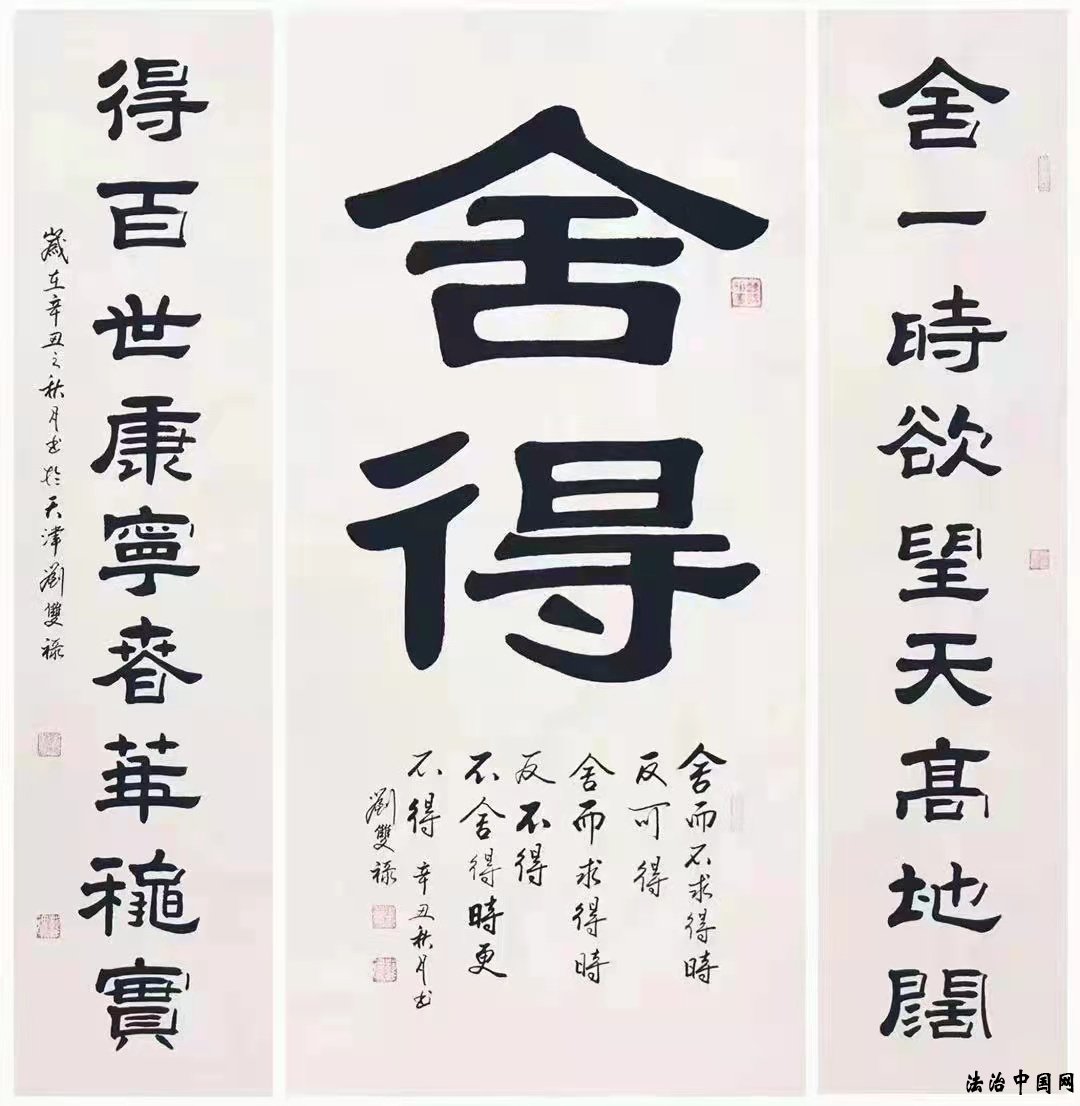 舍一時欲望天高地闊
舍得
舍而不求得時
反可得
舍而求得時
反不得
不舍得時更
不得 辛丑秋月书
劉雙禄
得百世康寧春華穐實
歲在辛丑之秋月书於天津劉雙禄
法治中国网